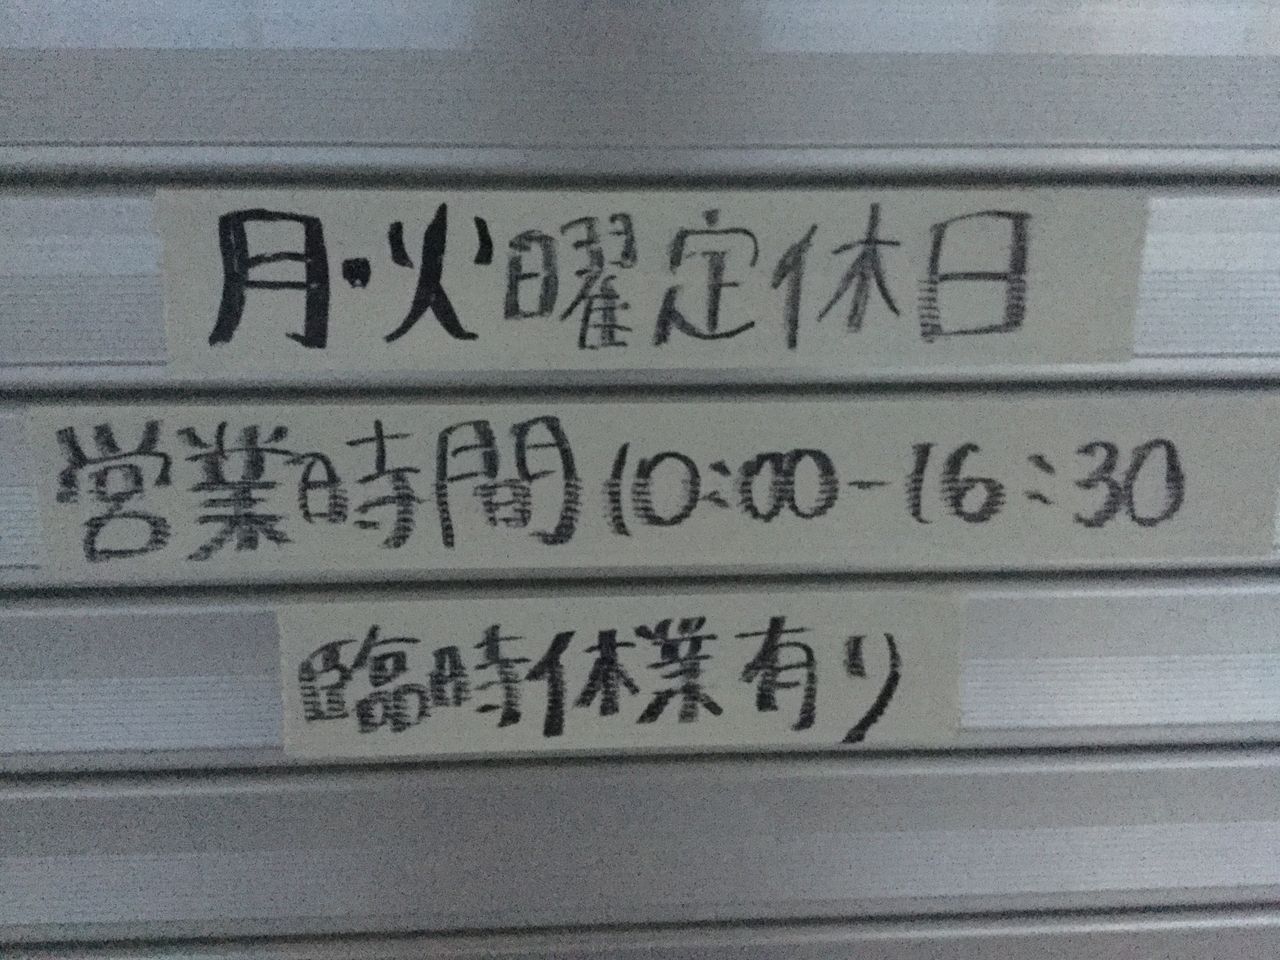 月・火曜定休日
営業時間10:00-16:30
臨時休業有り